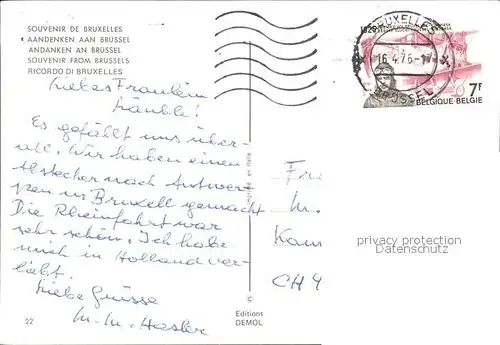 SOUVENIR DE BRUXELLES
AANDENKEN AAN BRUSSEL
ANDANKEN AN BRÜSSEL
SOUVENIR FROM BRUSSELS
RICORDO DI BRUXELLES
Liebes Fräulein
Es gefällt uns über-
all. Wir haben einen
Abstecher nach Antwer-
pen u. Brüssel gemacht
Die Rheinfahrt war
sehr schön. Ich habe
mich in Holland ver-
liebt.
Liebe Grüsse
M. M. Hasler
22
Imprimé en Italie
©
Editions
DEMOL
BRUXELLES
16.4.76-1
BRUSSEL
7F
BELGIQUE-BELGIE
CH
privacy protection
Datenschutz